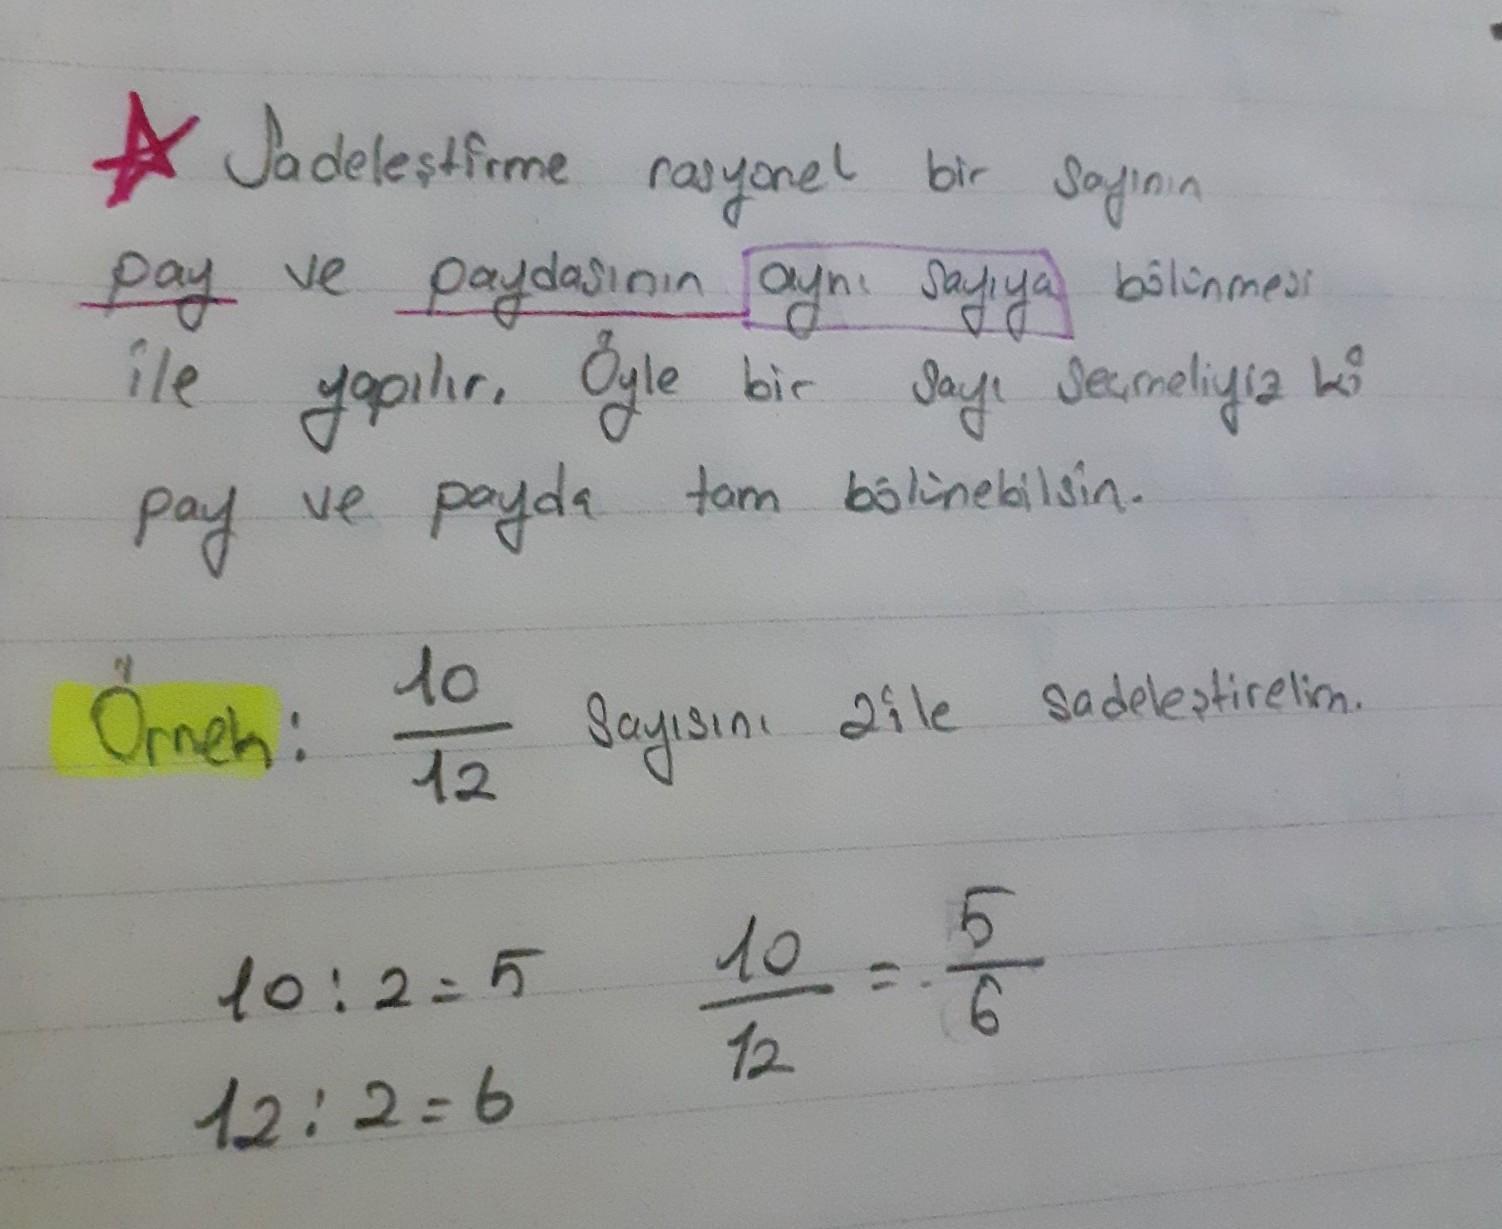 Sadeleştirme rasyonel bir sayının
pay ve paydasının aynı sayıya bölünmesi
ile yapılır. Öyle bir sayı seçmeliyiz ki
pay ve payda tam bölünebilsin.
Örnek: 10/12 sayısını 2 ile sadeleştirelim.
10 : 2 = 5 10/12 = 5/6
12 : 2 = 6